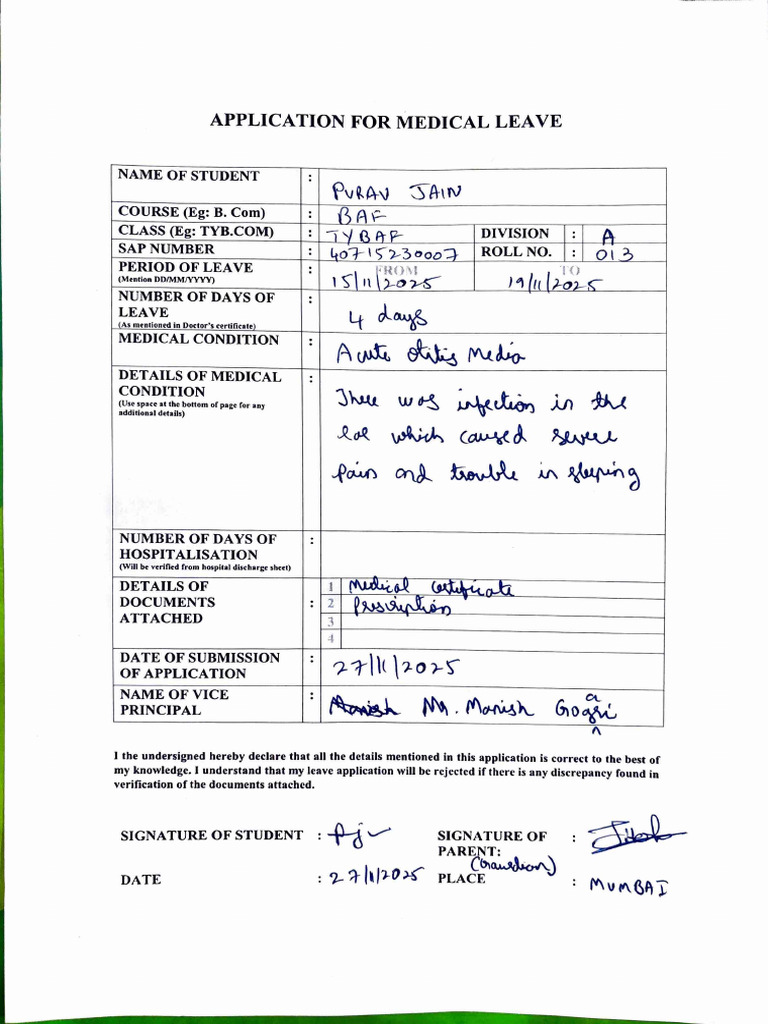 APPLICATION FOR MEDICAL LEAVE
NAME OF STUDENT : PURAV JAIN
COURSE (Eg: B. Com) : BAF
CLASS (Eg: TYB.COM) : TYBAF DIVISION : A
SAP NUMBER : 40715230007 ROLL NO. : 013
PERIOD OF LEAVE : FROM TO
(Mention DD/MM/YYYY) 15/11/2025 19/11/2025
NUMBER OF DAYS OF :
LEAVE 4 days
(As mentioned in Doctor's certificate)
MEDICAL CONDITION : Acute Otitis Media
DETAILS OF MEDICAL :
CONDITION There was infection in the
(Use space at the bottom of page for any
additional details)
ear which caused severe
pain and trouble in sleeping
NUMBER OF DAYS OF :
HOSPITALISATION
(Will be verified from hospital discharge sheet)
DETAILS OF 1 Medical certificate
DOCUMENTS : 2 Prescription
ATTACHED 3
4
DATE OF SUBMISSION : 27/11/2025
OF APPLICATION
NAME OF VICE : Manish Mr. Manish Gogri
PRINCIPAL
I the undersigned hereby declare that all the details mentioned in this application is correct to the best of
my knowledge. I understand that my leave application will be rejected if there is any discrepancy found in
verification of the documents attached.
SIGNATURE OF STUDENT : SIGNATURE OF :
PARENT:
(Guardian)
DATE : 27/11/2025 PLACE : MUMBAI